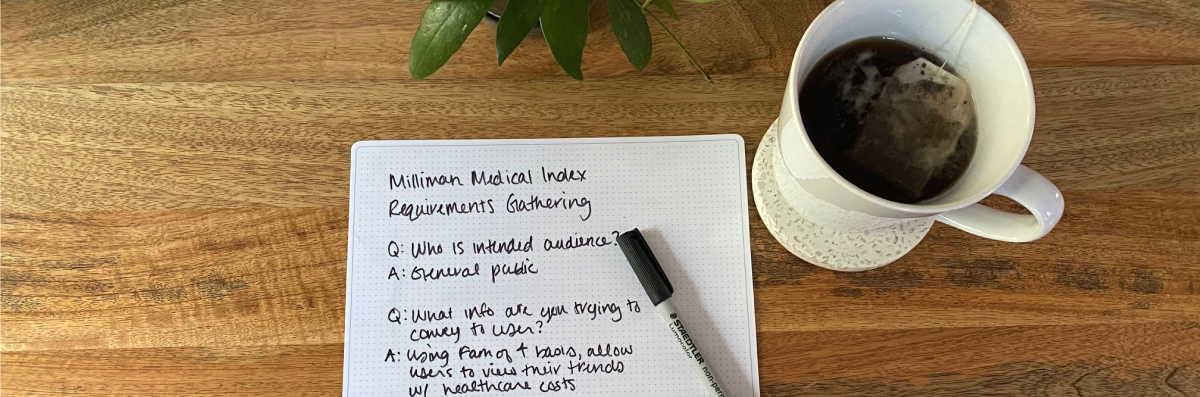 Milliman Medical Index
Requirements Gathering
Q: Who is intended audience?
A: General public
Q: What info are you trying to
convey to user?
A: Using Fam of 4 basis, allow
users to view their trends
w/ healthcare costs
STAEDTLER
Lumocolor
non-perm